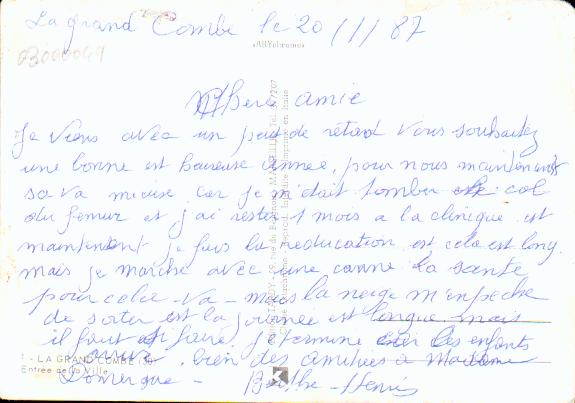 La grand Combe le 20/1/87
B000049
«ARYchrome»
Chere amie
Je viens avec un peu de retard vous souhaitez
une bonne est heureuse année, pour nous maintenant
sa va mieux car je m'était tomber col
du femur et j'ai rester 1 mois a la clinique est
maintenent je fais la reeducation est cela est long
mais je marche avec une canne la sante
pour cela va - mais la neige m'enpeche
de sorter est la journée est longue mais
il faut faire, je termine les enfants
bien des amitiees a Madame
Domergue - Berthe - Henri
1 - LA GRAND-COMBE (30)
Entrée de la Ville